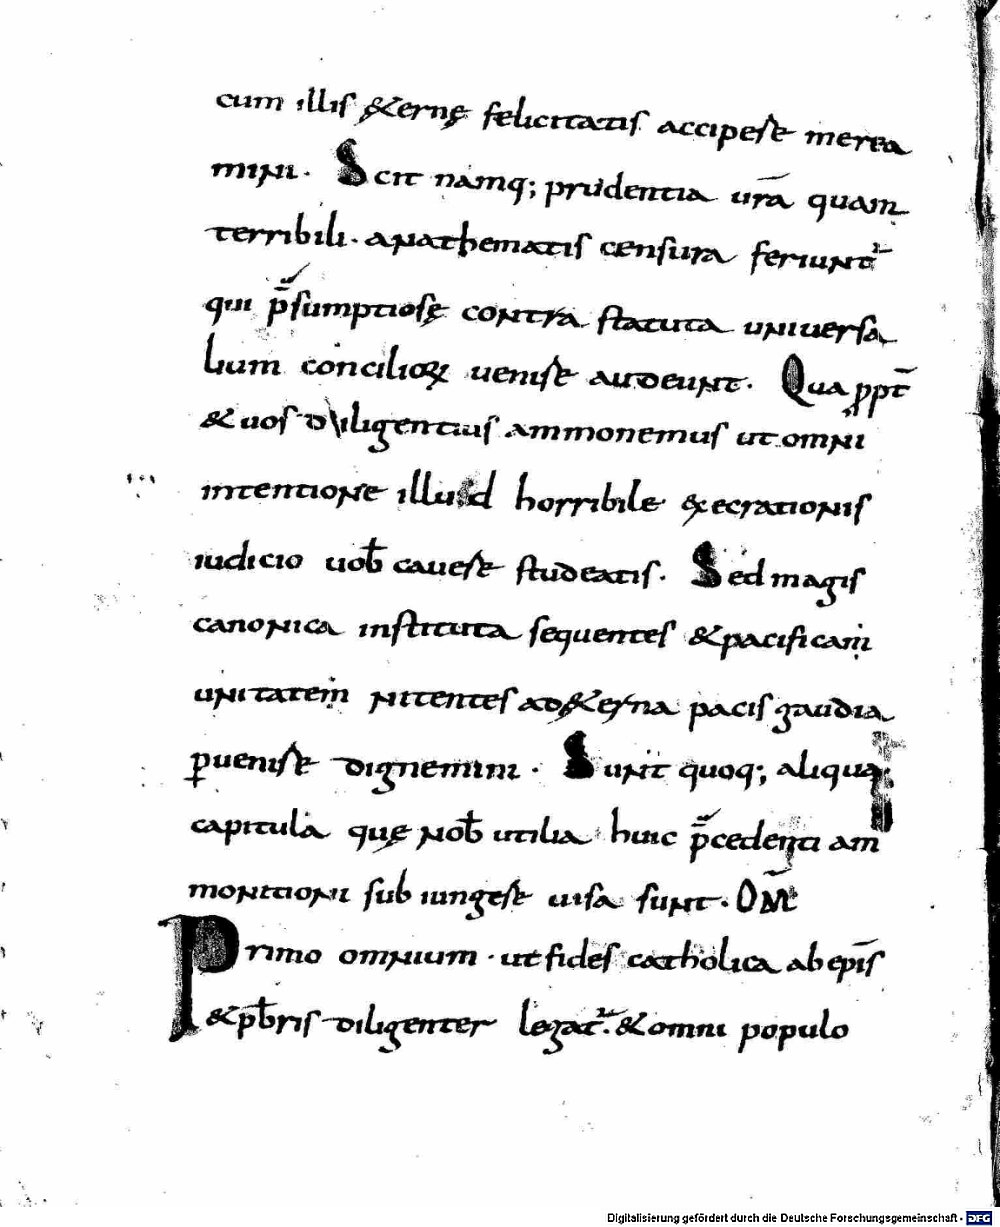 cum illis &ernę felicitatis accipere merea
mini. Scit namq; prudentia ur̄a quam
terribili. anathematis censura feriunt᷑
qui p̄sumptiosę contra statuta uniuersa
lium concilioꝝ uenire audeunt. Qua ꝓpt̄
& uos diligentius ammonemus ut omni
intentione illud horribile exęcrationis
iudicio uob̄ cauere studeatis. Sed magis
canonica instituta sequentes & pacificam
unitatem nitentes ad &erna pacis gaudia
ꝑuenire dignemini. Sunt quoq; aliqua
capitula quę nob̄ utilia huic p̄cedenti am
monitioni sub iungere uisa sunt. OM̄
Primo omnium. ut fides catholica ab ep̄is
& p̄bris diligenter legat᷑. & omni populo
Digitalisierung gefördert durch die Deutsche Forschungsgemeinschaft - DFG